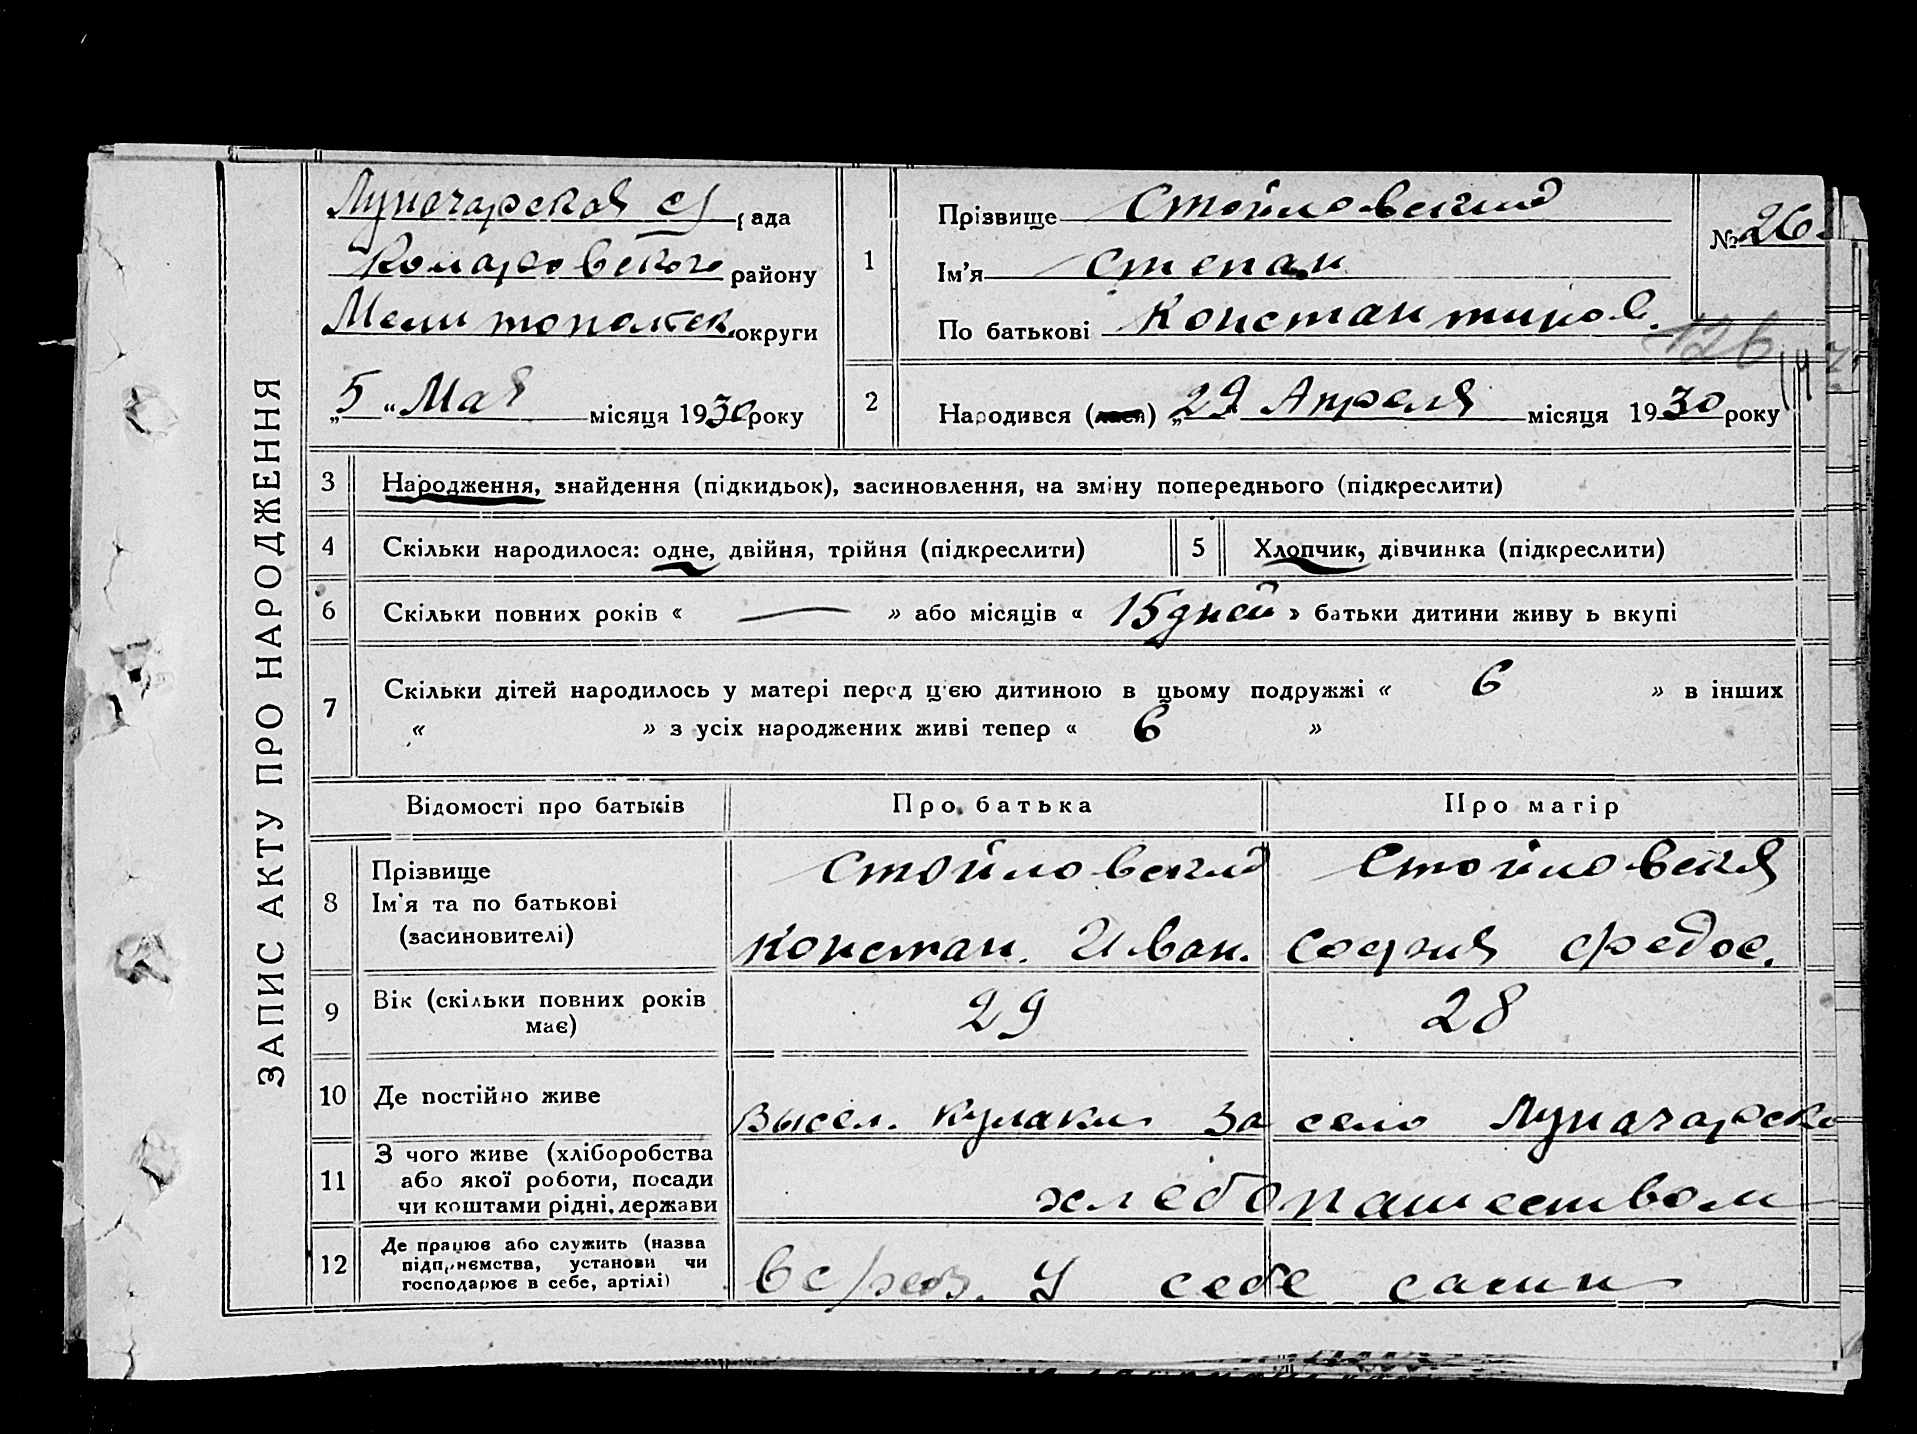 ЗАПИС АКТУ ПРО НАРОДЖЕННЯ
Луначарская с/рада
Комаровского району
Мелитопольск. округи
„5" Мая місяця 1930 року
1
Прізвище Стойловский
Ім'я Степан
По батькові Константинов.
№ 26
126
2
Народився (лася) „29 Апреля місяця 1930 року
3 Народження, знайдення (підкидьок), засиновлення, на зміну попереднього (підкреслити)
4 Скільки народилося: одне, двійня, трійня (підкреслити)
5 Хлопчик, дівчинка (підкреслити)
6 Скільки повних років « — » або місяців « 15 дней » батьки дитини живуть вкупі
7 Скільки дітей народилось у матері перед цією дитиною в цьому подружжі « 6 » в інших
« » з усіх народжених живі тепер « 6 »
Відомості про батьків
Про батька
Про матір
8 Прізвище
Ім'я та по батькові
(засиновителі)
Стойловский
Констан. Иван.
Стойловская
София Федос.
9 Вік (скільки повних років
має)
29
28
10 Де постійно живе
Высел. кулаки за село Луначарско
11 З чого живе (хліборобства
або якої роботи, посади
чи коштами рідні, держави
хлебопашеством
12 Де працює або служить (назва
підприємства, установи чи
господарює в себе, артілі)
у себе сами